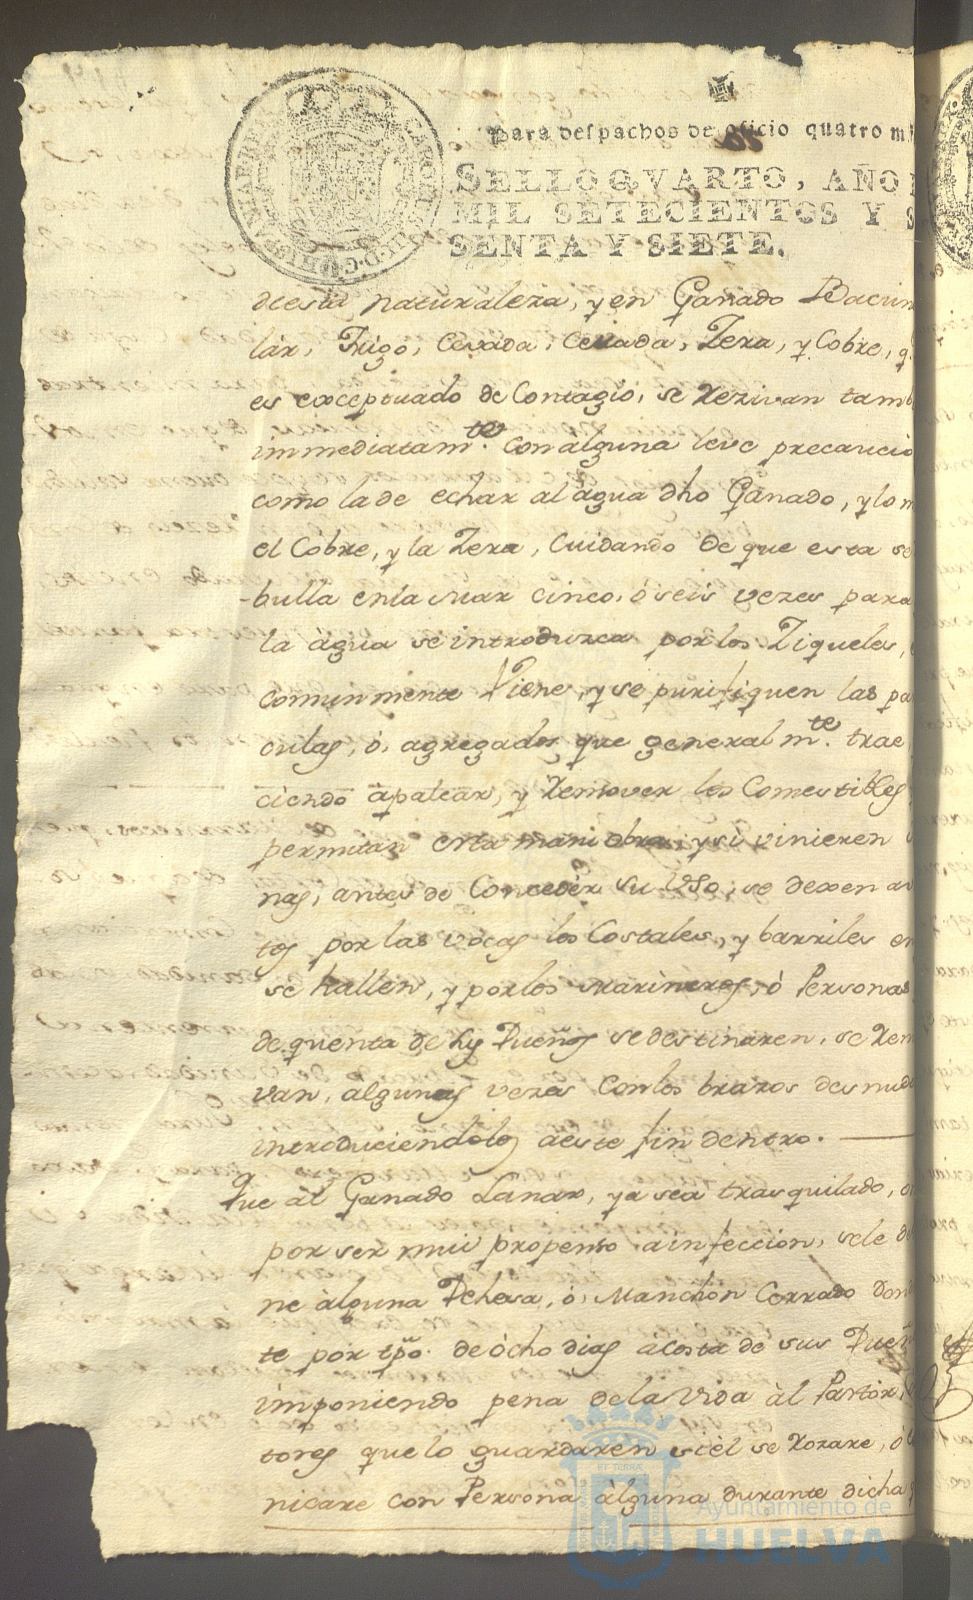 CAROLUS III D.G. HISPANIAR. REX
Para despachos de oficio quatro m
SELLO QVARTO, AÑO
MIL SETECIENTOS Y S
SENTA Y SIETE.
de esta naturaleza, y en Ganado Bacun
lar, Trigo, Cevada, Zera, y Cobre, q
es exceptuado de Contagio, se rezivan tamb
immediatam.te con alguna leve precaucio
como la de echar al agua dho Ganado, y lo m
el Cobre, y la Zera, Cuidando de que esta se
bulla en la mar cinco, ó seis vezes para
la àgua se introdurca por los
comunmente Viene, y se purifiquen las pa
culas, ò, agregados que general m.te trae
ciendo apalear, y Remover los Comestibles
permitan esta maniobra, y si vinieren
nas, antes de Conceder su Uso, se dexen av
tos por las vocas los Costales, y barriles en
se hallen, y por los marineros, ò Personas
de quenta de los Dueños se destinaren, se Rem
van, algunas vezes con los brazos desnud
introduciendolos a este fin dentro.
Que àl Ganado Lanar, ya sea trasquilado, o
por ser mui propenso a infeccion, se le d
ne àlguna Dehesa, ò, Manchon Cerrado don
te por tpõ. de òcho dias a costa de sus Dueñ
imponiendo pena de la Vida àl Pastor,
tores que lo guardaren si èl se Rozare, ó
nicare con Persona àlguna durante dicha q
Ayuntamiento de
HUELVA